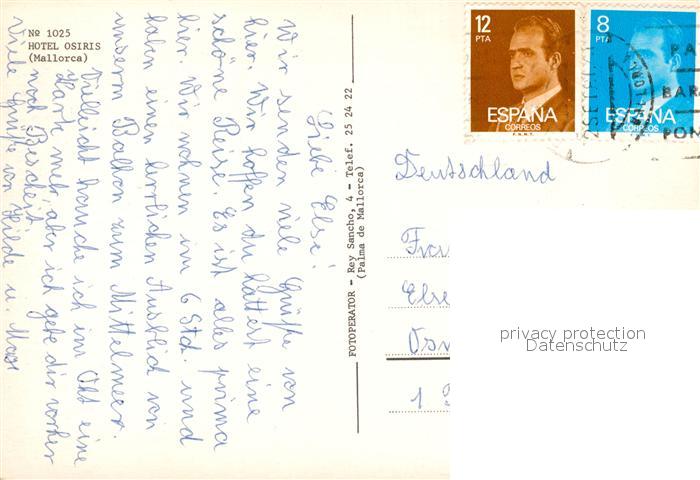 Nº 1025
HOTEL OSIRIS
(Mallorca)
Liebe Else!
Wir senden viele Grüße von
hier. Wir hoffen du hattest eine
schöne Reise. Es ist alles prima
hier. Wir wohnen im 6 Std. und
haben einen herrlichen Ausblick von
unserm Balkon zum Mittelmeer.
Vielleicht brauche ich im Okt eine
Karte mehr, aber ich gebe dir vorher
noch Bescheid
Viele Grüße von Hilde u. Max
FOTOPERATOR - Rey Sancho, 4 - Telef. 25 24 22
(Palma de Mallorca)
12
PTA
ESPAÑA
CORREOS
F.N.M.T.
8
PTA
ESPAÑA
CORREOS
F.N.M.T.
PA
BAR
PON
Deutschland
Frau
Else
Osn
1
privacy protection
Datenschutz